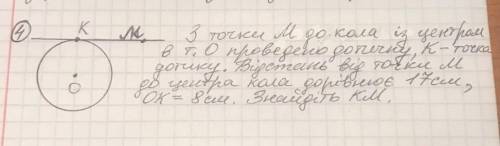 4 K M. З точки М до кола із центром
в т. О проведено дотичну, К - точка
дотику. Відстань від точки М
О до центра кола дорівнює 17см,
ОК = 8см. Знайдіть КМ.